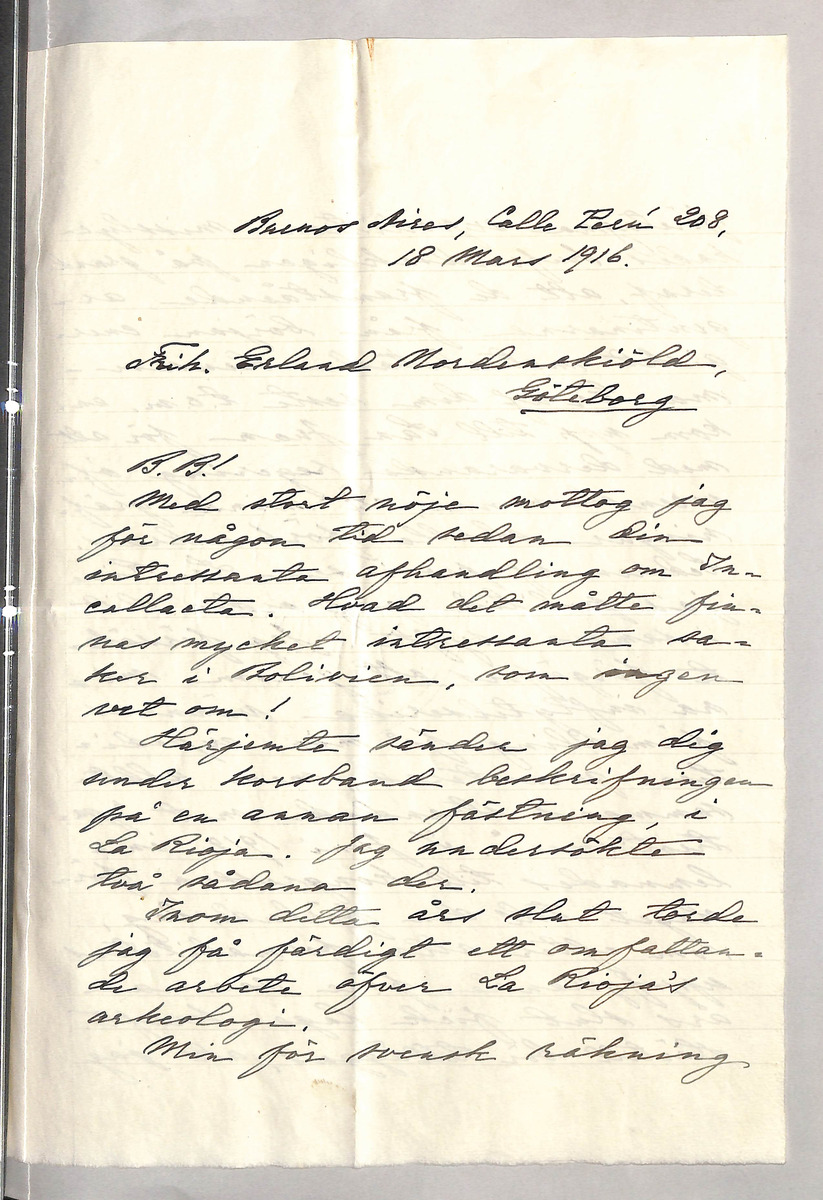 Buenos Aires, Calle Perú 208,
18 Mars 1916.
Frih. Erland Nordenskiöld,
Göteborg
B. B.!
Med stort nöje mottog jag
för någon tid sedan Din
intressanta afhandling om In-
callacta. Hvad det måtte fin-
nas mycket intressanta sa-
ker i Bolivien, som ingen
vet om!
Härjemte sänder jag dig
under korsband beskrifningen
på en annan fästning, i
La Rioja. Jag undersökte
två sådana der.
Inom detta års slut torde
jag få färdigt ett omfattan-
de arbete öfver La Rioja's
arkeologi.
Min för svensk räkning